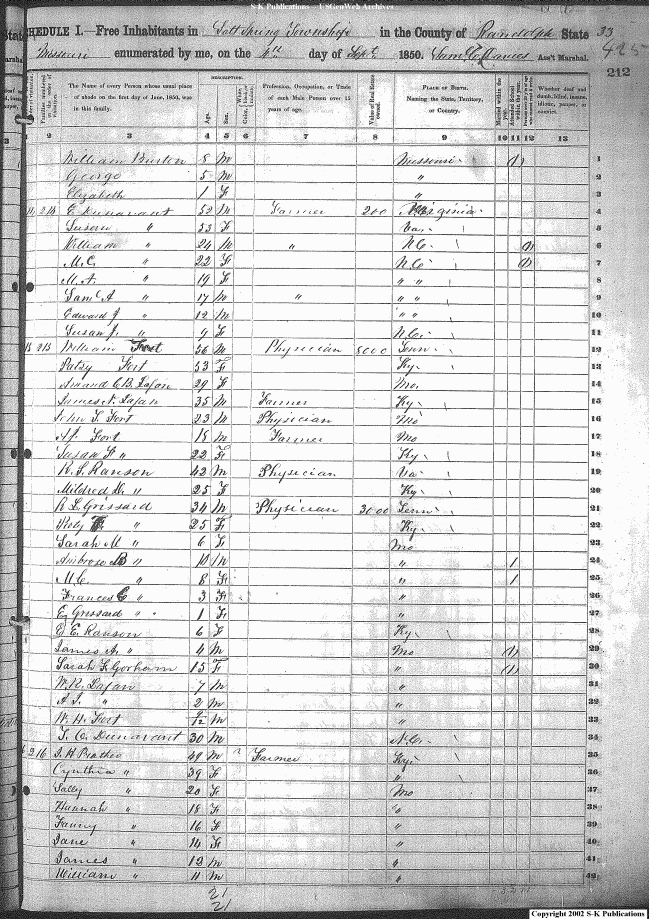 S-K Publications - USGenWeb Archives
SCHEDULE I.—Free Inhabitants in Salt Spring Township in the County of Randolph State 33
Missouri enumerated by me, on the 4th day of Sept. 1850. Ass't Marshal. 425
212
DESCRIPTION.
The Name of every Person whose usual place of abode on the first day of June, 1850, was in this family. Age. Sex. Profession, Occupation, or Trade of each Male Person over 15 years of age. Value of Real Estate owned. PLACE OF BIRTH. Naming the State, Territory, or Country. Married within the year. Attended School within the year. Whether deaf and dumb, blind, insane, idiotic, pauper, or convict.
2 3 4 5 6 7 8 9 10 11 12 13
William Burton 8 M Missouri 1 1
George 5 M " 2
Elizabeth 1 F " 3
E. Dunavant 52 M Farmer 200 Virginia 4
Susan " 53 F Va. 5
William " 24 M " N.C. 1 6
M.C. " 22 F N.C. 1 7
M.A. " 19 F " " 8
Saml A " 17 M " " " 9
Edward J " 12 M " " 10
Susan J. " 9 F N.C. 11
William Fort 56 M Physician 8000 Tenn 12
Patsy Fort 53 F Ky. 13
Amand C.B. Lafan 29 F Mo. 14
James N. Lafan 35 M Farmer Ky. 15
John T. Fort 23 M Physician Mo 16
Fort 18 M Farmer Mo 17
Susan F " 22 F Ky. 18
R. S. Ranson 42 M Physician Va. 19
Mildred " 25 F Ky. 20
R L Grissard 34 M Physician 3000 Tenn. 21
" 25 F Ky. 22
Sarah M " 6 F Mo 23
Ambrose B " 10 M " 1 24
M.C. " 8 F " 1 25
Frances C " 3 F " 26
E. Grissard " 1 F " 27
E. Ranson 6 F Ky. 28
James A. " 4 M Mo 1 29
Sarah F. Gorham 15 F " 1 30
W.R. Lafan 7 M " 31
A.J. " 2 M " 32
W. H. Fort 9/12 M " 33
T. C. Dunavant 30 M N.C. 34
216 J. H. Prather 49 M Farmer Ky. 35
Cynthia " 39 F " 36
Sally " 20 F Mo 37
Hannah " 18 F " 38
Fanny " 16 F " 39
Jane " 14 F " 40
James " 13 M " 41
William " 11 M " 42
21
21
Copyright 2002 S-K Publications